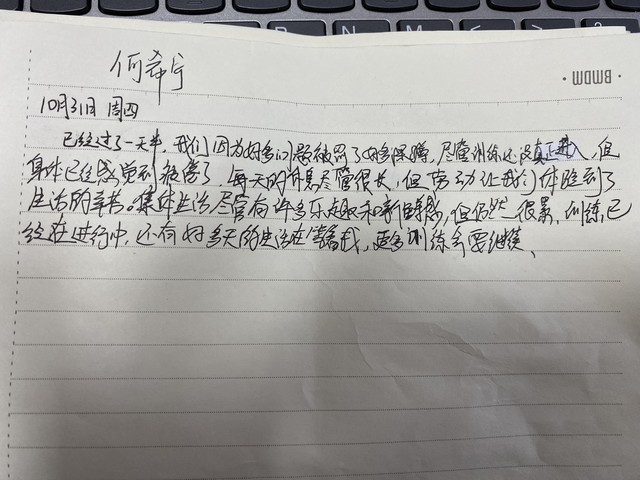 何希宁
BMDM
10月31日 周四
已经过了一天半,我们因为好多问题被罚了好多深蹲,尽管训练还没真正进入,但
身体已经感觉到疲倦了,每天的休息尽管很长,但劳动让我们体验到了
生活的辛苦。集体生活尽管有许多乐趣和新鲜感,但仍然很累,训练已
经在进行中,还有好多天的生活在等着我,更多训练需要继续、